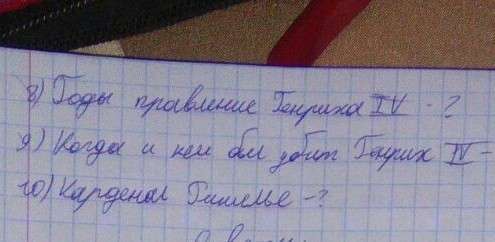 8) Годы правление Генриха IV - ?
9) Когда и кем был убит Генрих IV -
10) Карденал Ришелье - ?